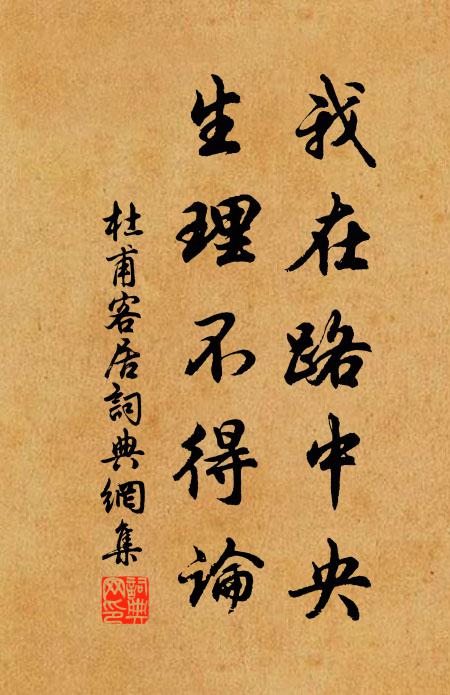 我在路中央
生理不得論
杜甫客居詞典網集
詞典网印